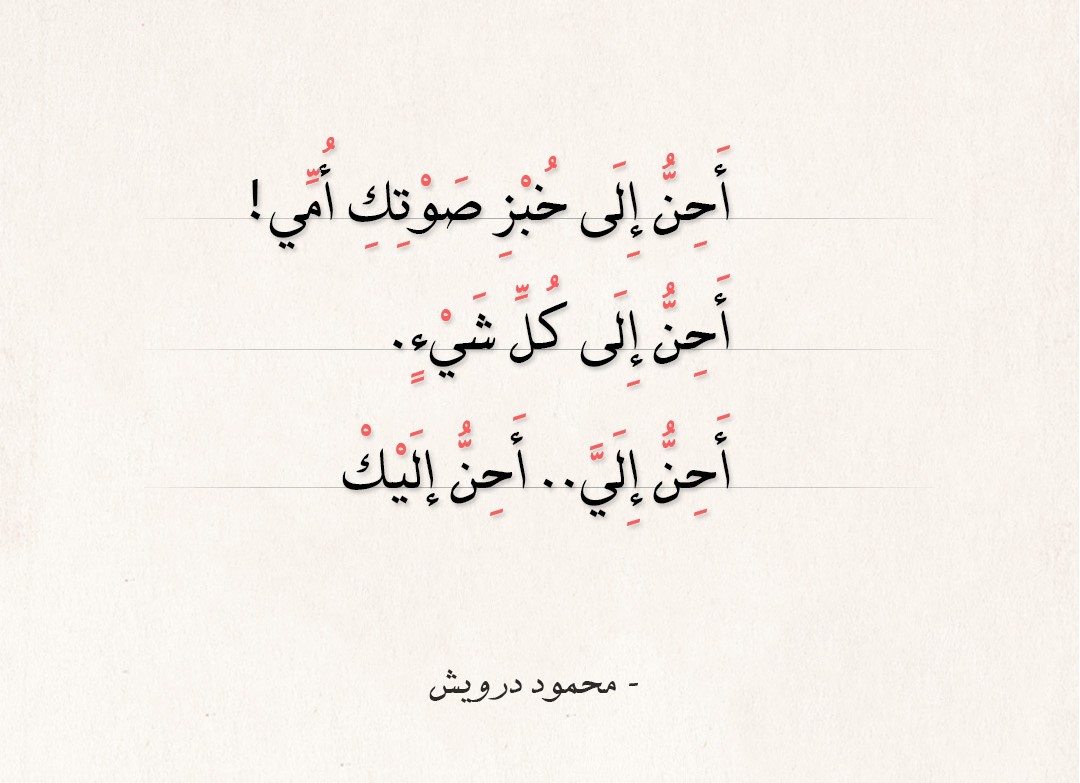 أَحِنُّ إِلَى خُبْزِ صَوْتِكِ أُمِّي!
أَحِنُّ إِلَى كُلِّ شَيْءٍ.
أَحِنُّ إِلَيَّ.. أَحِنُّ إلَيْكْ
- محمود درويش